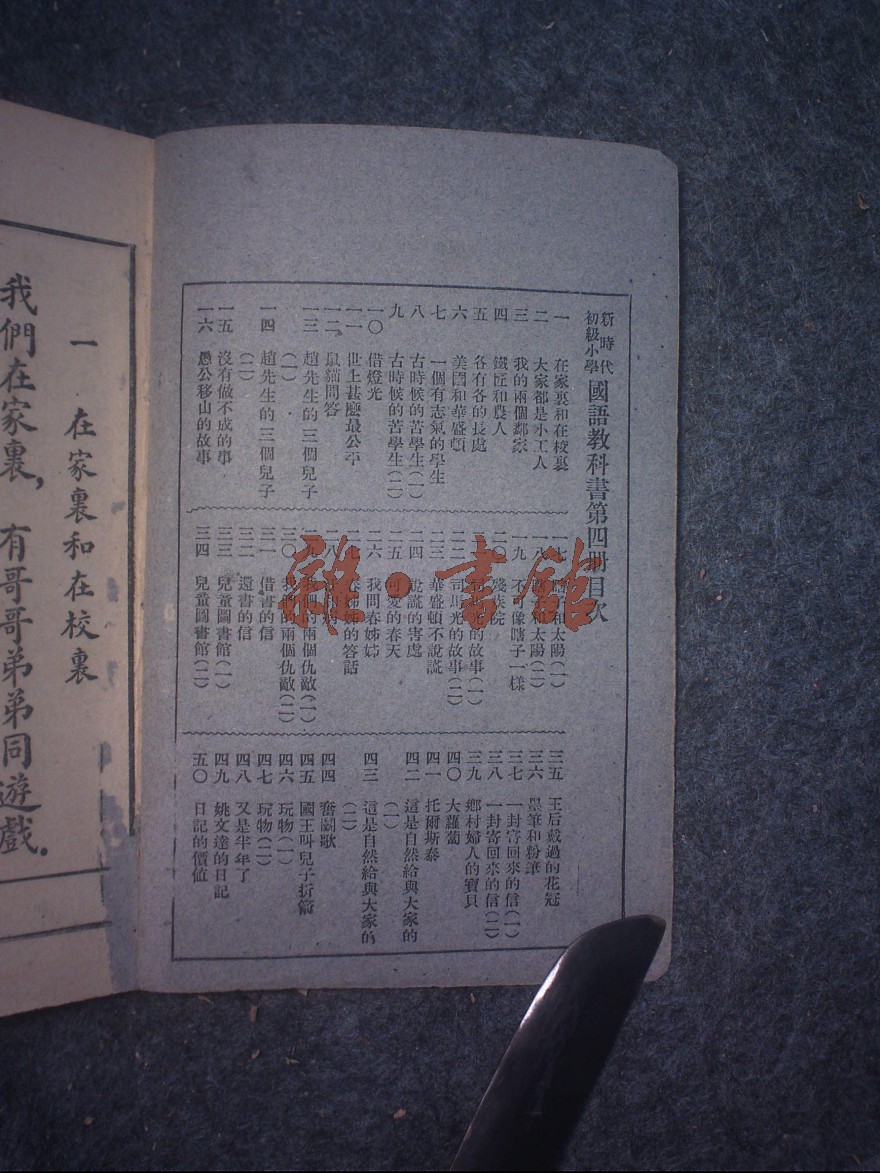 新時代
初級小學
國語教科書第四冊目次
一 在家裏和在校裏
二 大家都是小工人
三 我的兩個鄰家
四 鐵匠和農人
五 各有各的長處
六 美國和華盛頓
七 一個有志氣的學生
八 古時候的苦學生(一)
九 古時候的苦學生(二)
一〇 借燈光
一一 世上甚麼最公平
一二 鼠貓問答
一三 趙先生的三個兒子(一)
一四 趙先生的三個兒子(二)
一五 沒有做不成的事
一六 愚公移山的故事
一七 和太陽(一)
一八 和太陽(二)
一九 不可像瞎子一樣
二〇 殘疾院
光的故事(一)
二二 司馬光的故事(二)
二三 華盛頓不說謊
二四 說謊的害處
二五 可愛的春天
二六 我問春姊姊
二七 春姊姊的答話
二八
二九 我們的兩個仇敵(一)
三〇 我們的兩個仇敵(二)
三一 借書的信
三二 還書的信
三三 兒童圖書館(一)
三四 兒童圖書館(二)
三五 王后戴過的花冠
三六 墨筆和粉筆
三七 一封寄回來的信(一)
三八 一封寄回來的信(二)
三九 鄉村婦人的寶貝
四〇 大蘿蔔
四一 托爾斯泰
四二 這是自然給與大家的(一)
四三 這是自然給與大家的(二)
四四 奮鬭歌
四五 國王叫兒子折箭
四六 玩物(一)
四七 玩物(二)
四八 又是半年了
四九 姚文達的日記
五〇 日記的價值
雜·書館
一 在家裏和在校裏
我們在家裏,有哥哥弟弟同遊戲.